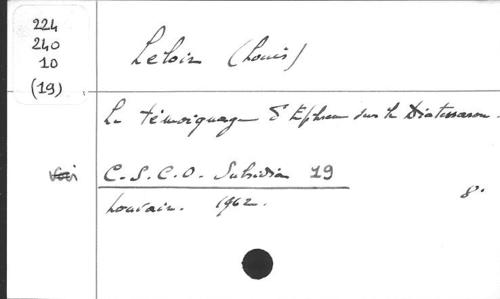 224
240
10
(19)
Leloir (Louis)
Le témoignage d'Ephrem sur le Diatessaron.
voir C.S.C.O. Subsidia 19
Louvain. 1962. 8°